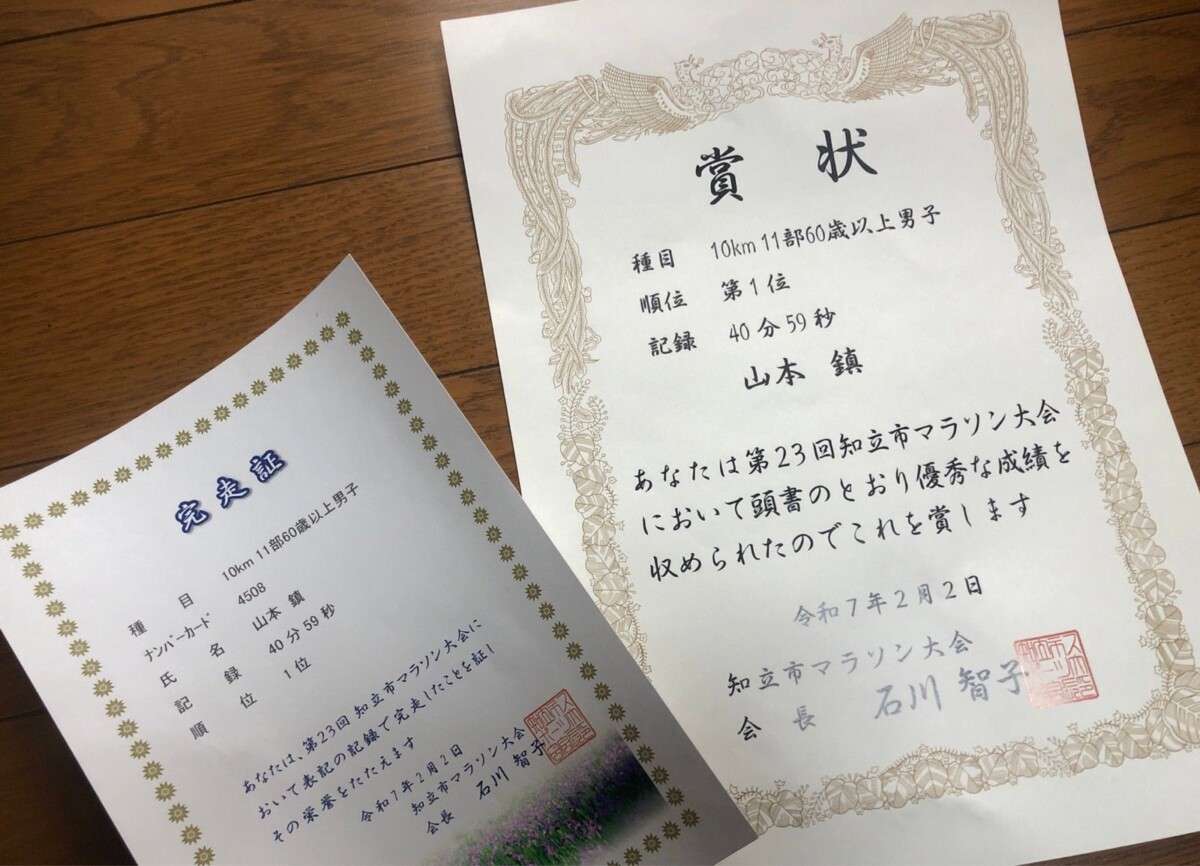 賞 状
種目 10km 11部60歳以上男子
順位 第1位
記録 40分59秒
山本 鎮
あなたは第23回知立市マラソン大会
において頭書のとおり優秀な成績を
収められたのでこれを賞します
令和7年2月2日
知立市マラソン大会
会 長 石川 智子
完走証
種 目 10km 11部60歳以上男子
ナンバーカード 4508
氏 名 山本 鎮
記 録 40分59秒
順 位 1位
あなたは、第23回 知立市マラソン大会に
おいて表記の記録で完走したことを証し
その栄誉をたたえます
令和7年2月2日
知立市マラソン大会
会長 石川 智子